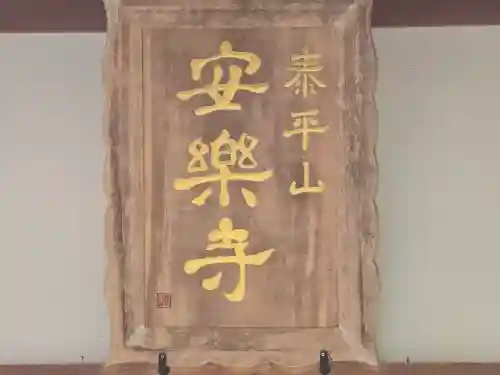 泰平山
安樂寺